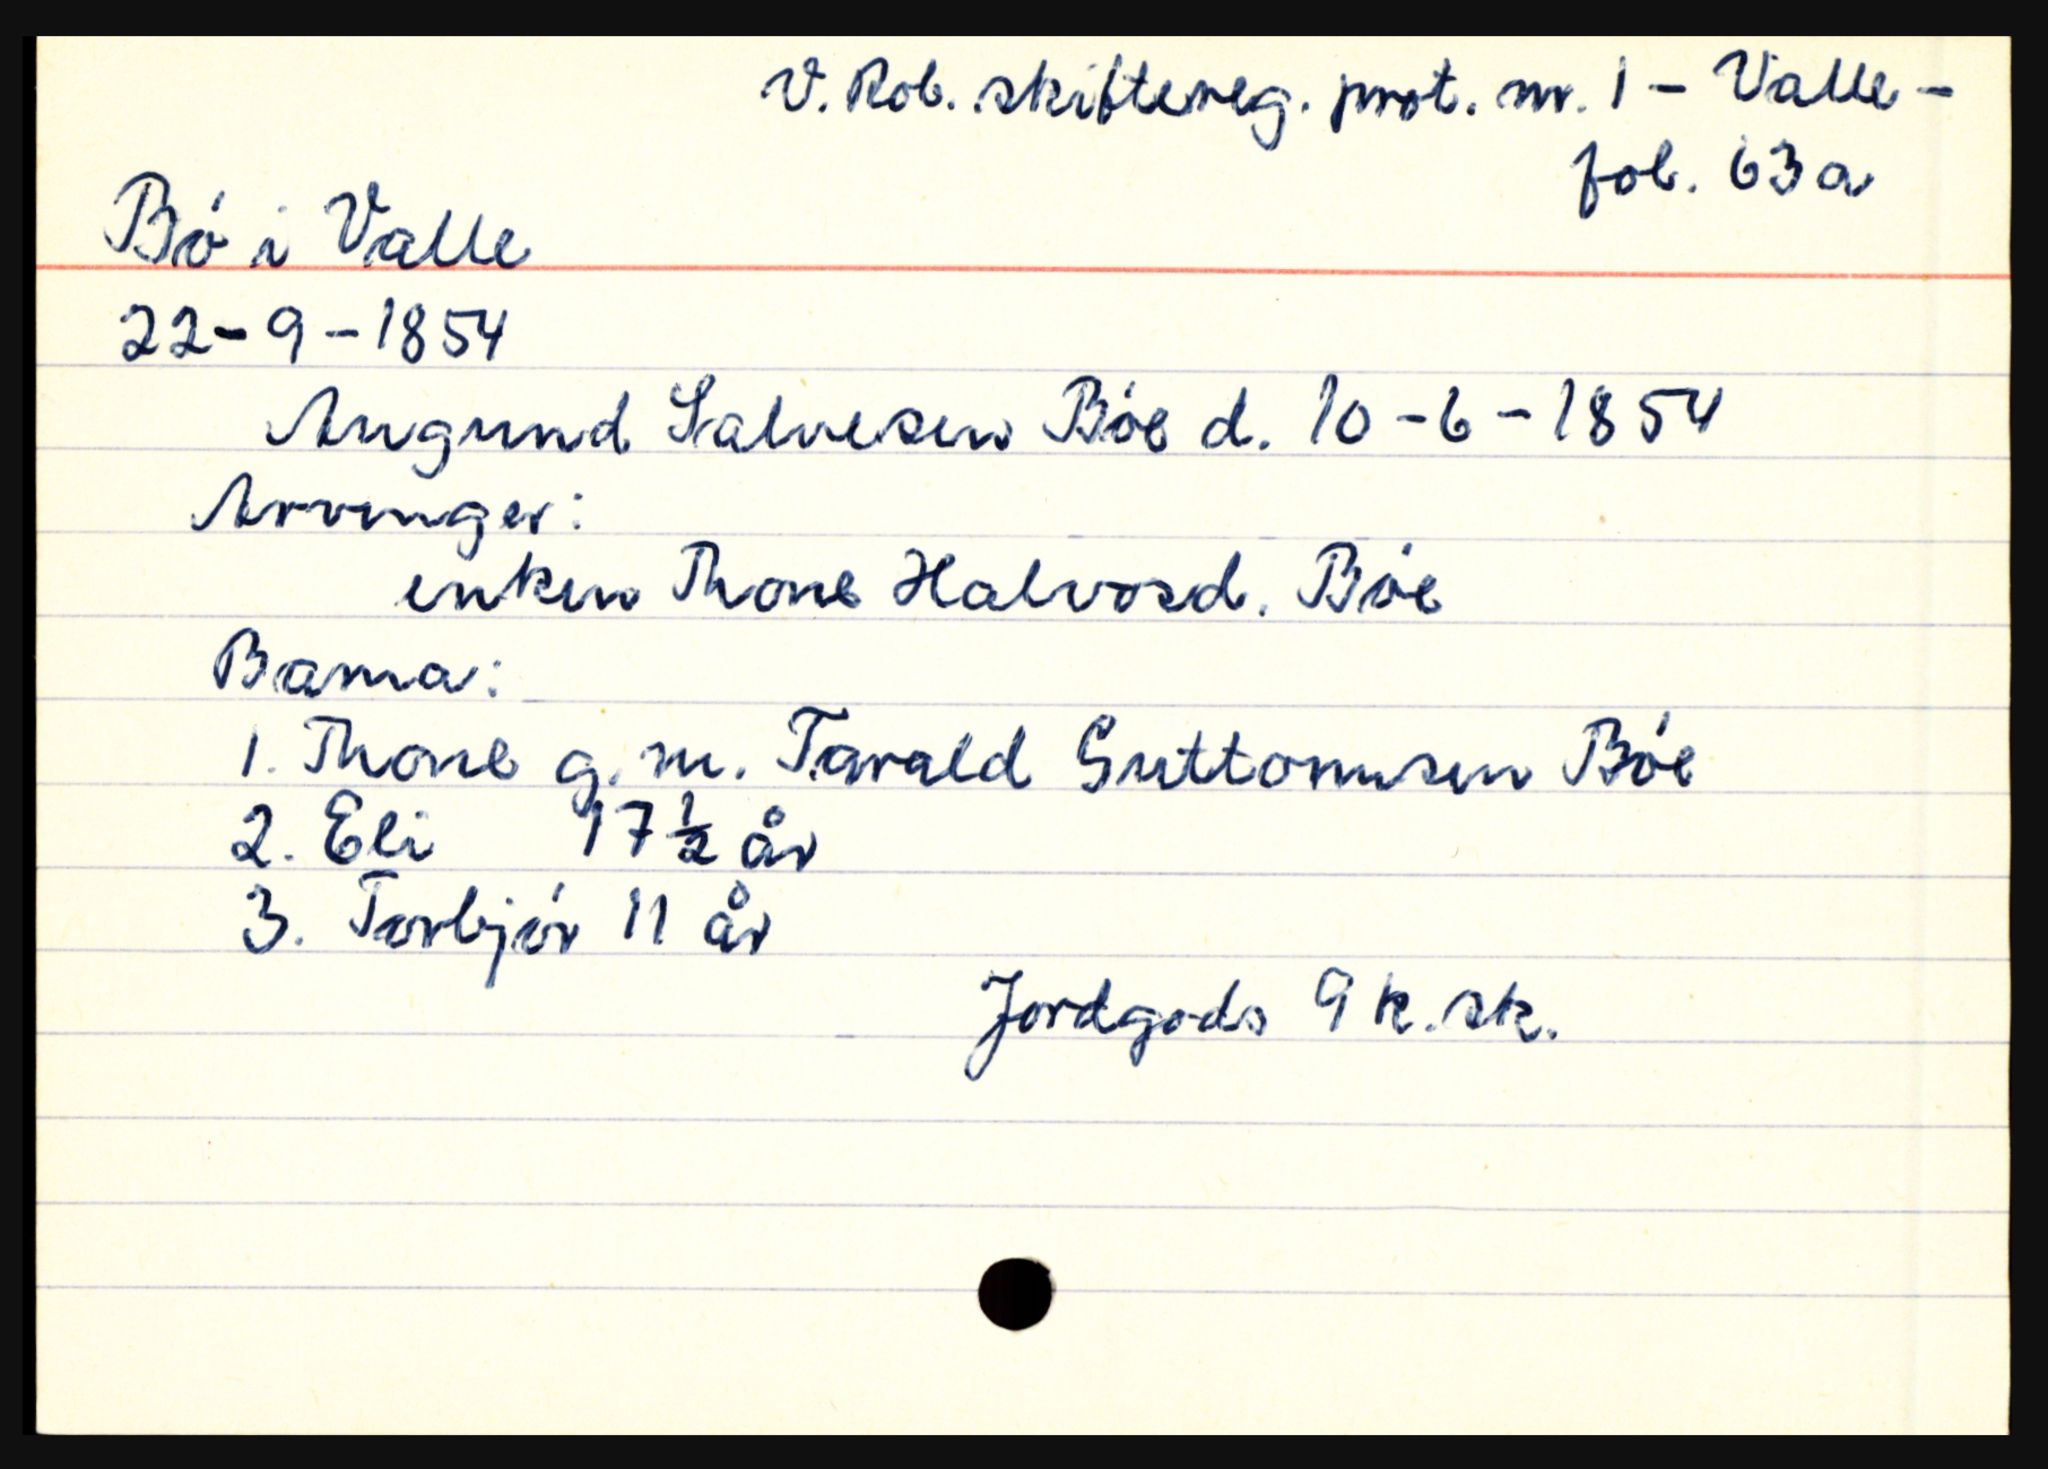 V. Rob. skiftereg. prot. nr. 1 - Valle -
fol. 63a
Bø i Valle
22-9-1854
Augund Salvesen Bøe d. 10-6-1854
Arvinger:
enken Thone Halvosd. Bøe
Barna:
1. Thone g.m. Tarald Guttormsen Bøe
2. Eli 17 1/2 år
3. Torbjør 11 år
Jordgods 9 k. sk.